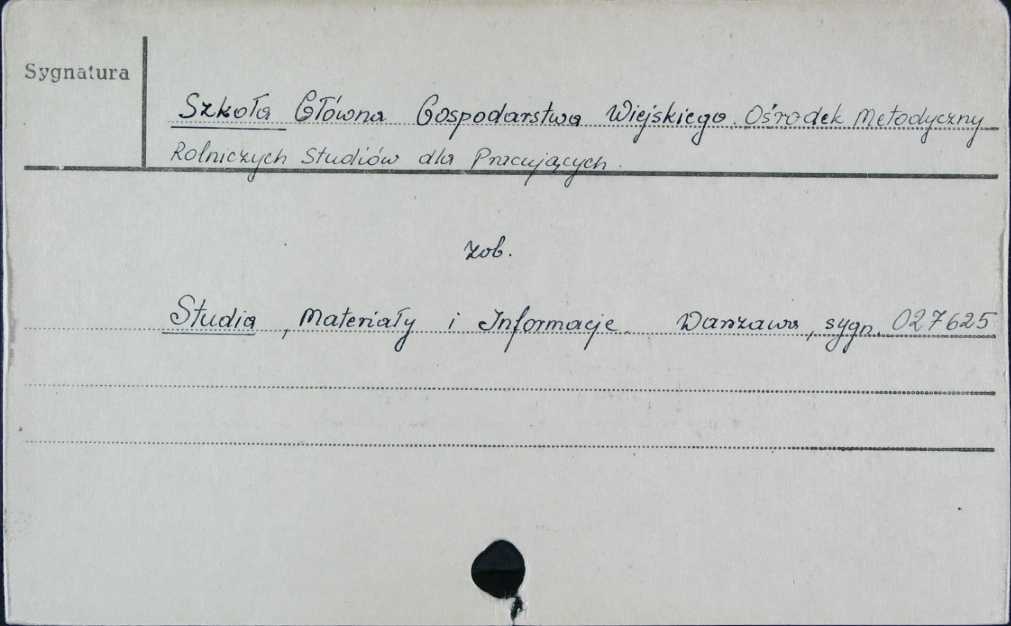 Sygnatura
Szkoła Główna Gospodarstwa Wiejskiego. Ośrodek Metodyczny
Rolniczych Studiów dla Pracujących.
zob.
Studia, Materiały i Informacje. Warszawa, sygn. 027625